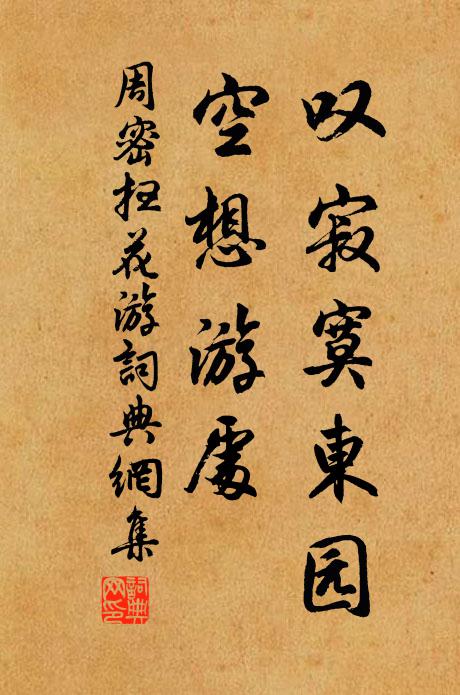 叹寂寞東园
空想游處
周密扫花游詞典網集
詞典
网印